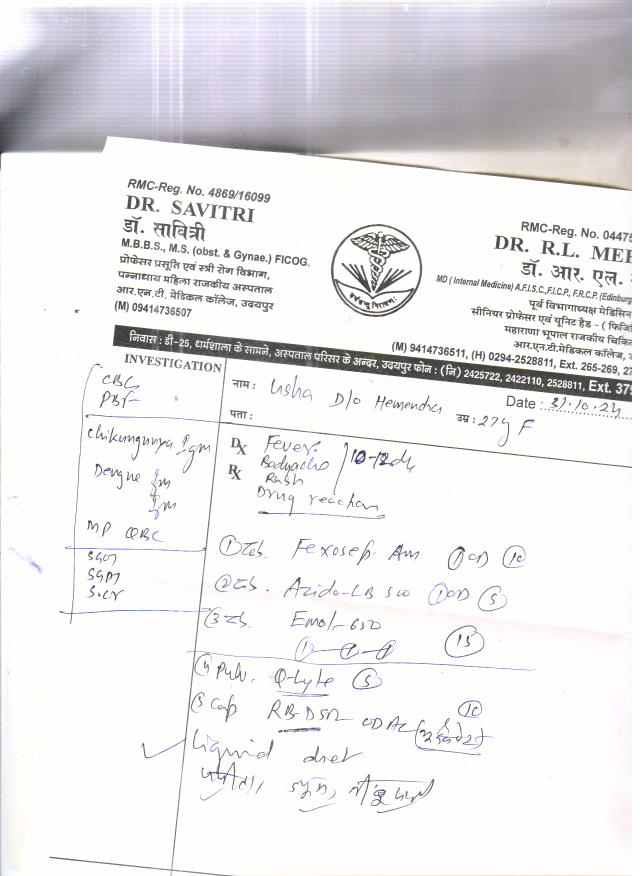 RMC-Reg. No. 4869/16099
DR. SAVITRI
डॉ. सावित्री
M.B.B.S., M.S. (obst. & Gynae.) FICOG.
प्रोफेसर प्रसूति एवं स्त्री रोग विभाग,
पन्नाधाय महिला राजकीय अस्पताल
आर.एन.टी. मेडिकल कॉलेज, उदयपुर
(M) 09414736507
RMC-Reg. No. 0447
DR. R.L. MEE
डॉ. आर. एल.
MD ( Internal Medicine) A.F.I.S.C.,F.I.C.P., F.R.C.P. (Edinburg
पूर्व विभागाध्यक्ष मेडिसिन
सीनियर प्रोफेसर एवं यूनिट हैड - ( फिजि
महाराणा भूपाल राजकीय चिकि
आर.एन.टी.मेडिकल कॉलेज,
(M) 9414736511, (H) 0294-2528811, Ext. 265-269, 27
निवास : डी-25, धर्मशाला के सामने, अस्पताल परिसर के अन्दर, उदयपुर फोन : (नि) 2425722, 2422110, 2528811, Ext. 375
INVESTIGATION
CBC
PBF
Chikungunya Igm
Dengue
MP QBC
SGOT
SGPT
S.Cr
नाम : Usha D/o Hemendra
Date : 31.10.24
पता :
उम्र : 27y F
Dx Fever
Rx Bodyache
Rash
Drug reaction
① Tab. Fexosep. Am ① OD ⑩
② Tab. Azido-LB 500 ① OD ⑤
③ Tab. Emol-650
①-①-① ⑮
④ Pulv. Q-lyte ⑤
⑤ Cap RB DSR OD AC ⑩
Liquid diet
पपीता,